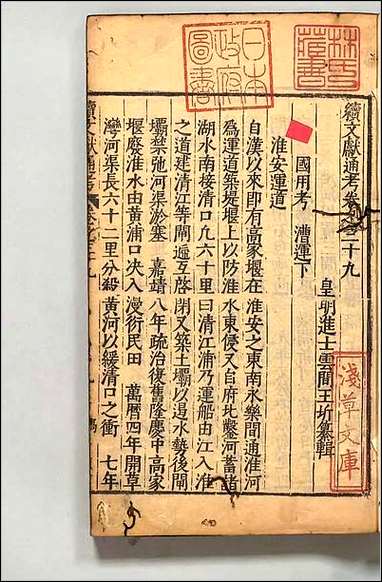 續文獻通考卷之三十九
皇明進士雲間王圻纂輯
國用考 漕運下
淮安運道
自漢以來即有高家堰在淮安之東南永樂間通淮河
為運道築堤堰上以防淮水東侵又自府北鑿河蓄諸
湖水南接清口凢六十里曰清江浦乃運船由江入淮
之道建清江等閘遞互啓閉又築土壩以遏水勢後閘
壩禁弛河渠淤塞 嘉靖八年疏治復舊隆慶中高家
堰廢淮水由黃浦口决入漫衍民田 萬曆四年開草
灣河渠長六十二里分殺黃河以緩清口之衝 七年
續文獻通考
林氏藏書
日本政府圖書
淺草文庫